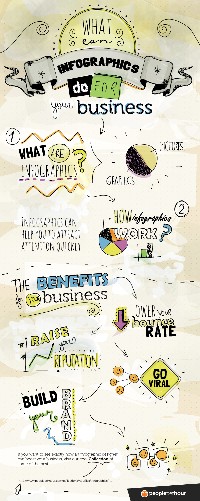 WHAT
can
INFOGRAPHICS
do FOR
your business
1
WHAT ARE
INFOGRAPHICS ?
PICTURES
GRAPHICS
INFOGRAPHICS CAN
HELP YOU TO ATTRACT
ATTENTION QUICKLY
2
HOW infographics
WORK?
THE BENEFITS
TO business
LOWER your
bounce
RATE
RAISE
your
REPUTATION
GO
VIRAL
BUILD
your
BRAND
peopleperhour